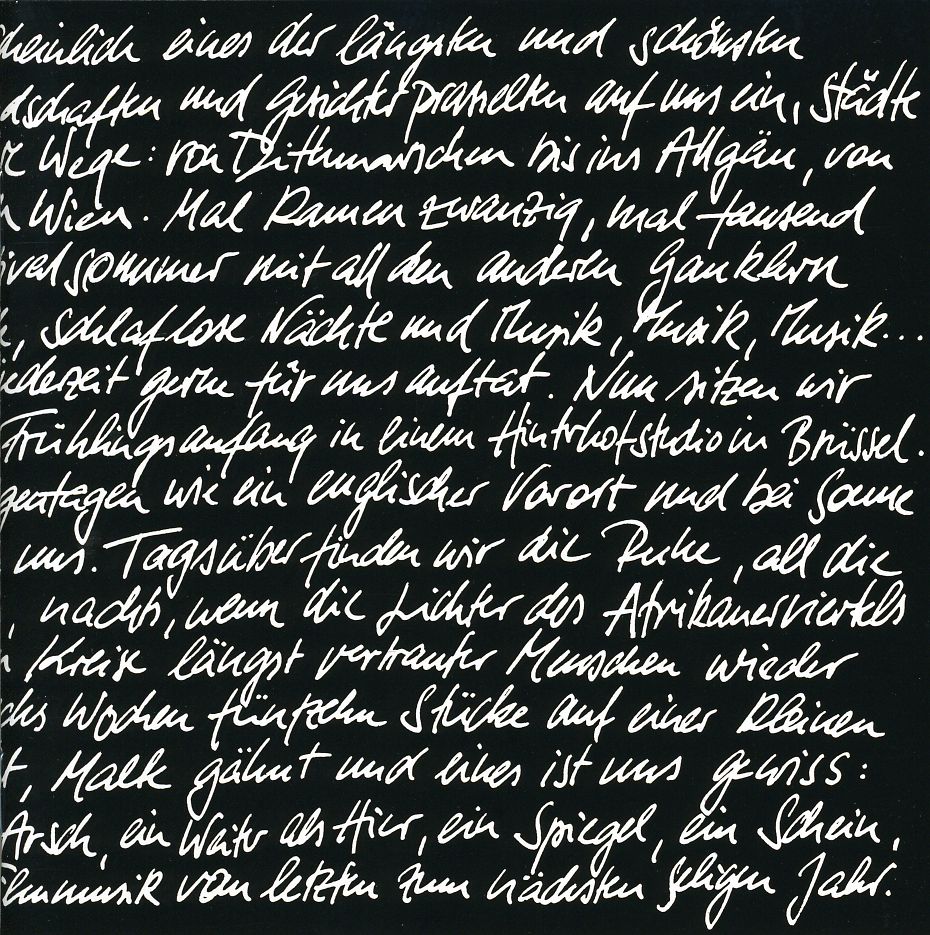 heinlich eines der längsten und schönsten
dschaften und Gesichter prasselten auf uns ein, Städte
Wege: von Dithmarschen bis ins Allgäu, von
Wien. Mal kamen zwanzig, mal tausend
ivalsommer mit all den anderen Gauklern
, schlaflose Nächte und Musik, Musik, Musik...
iederzeit gerne für uns auftat. Nun sitzen wir
Frühlingsanfang in einem Hinterhofstudio in Brüssel.
gentagen wie ein englischer Vorort und bei Sonne
uns. Tagsüber finden wir die Ruhe, all die
, nachts, wenn die Lichter des Afrikanerviertels
Kreise längst vertrauter Menschen wieder
chs Wochen fünfzehn Stücke auf einer kleinen
t, Malte gähnt und eines ist uns gewiss:
Arsch, ein Weiter als Hier, ein Spiegel, ein Schein,
lmmusik vom letzten zum nächsten seligen Jahr.